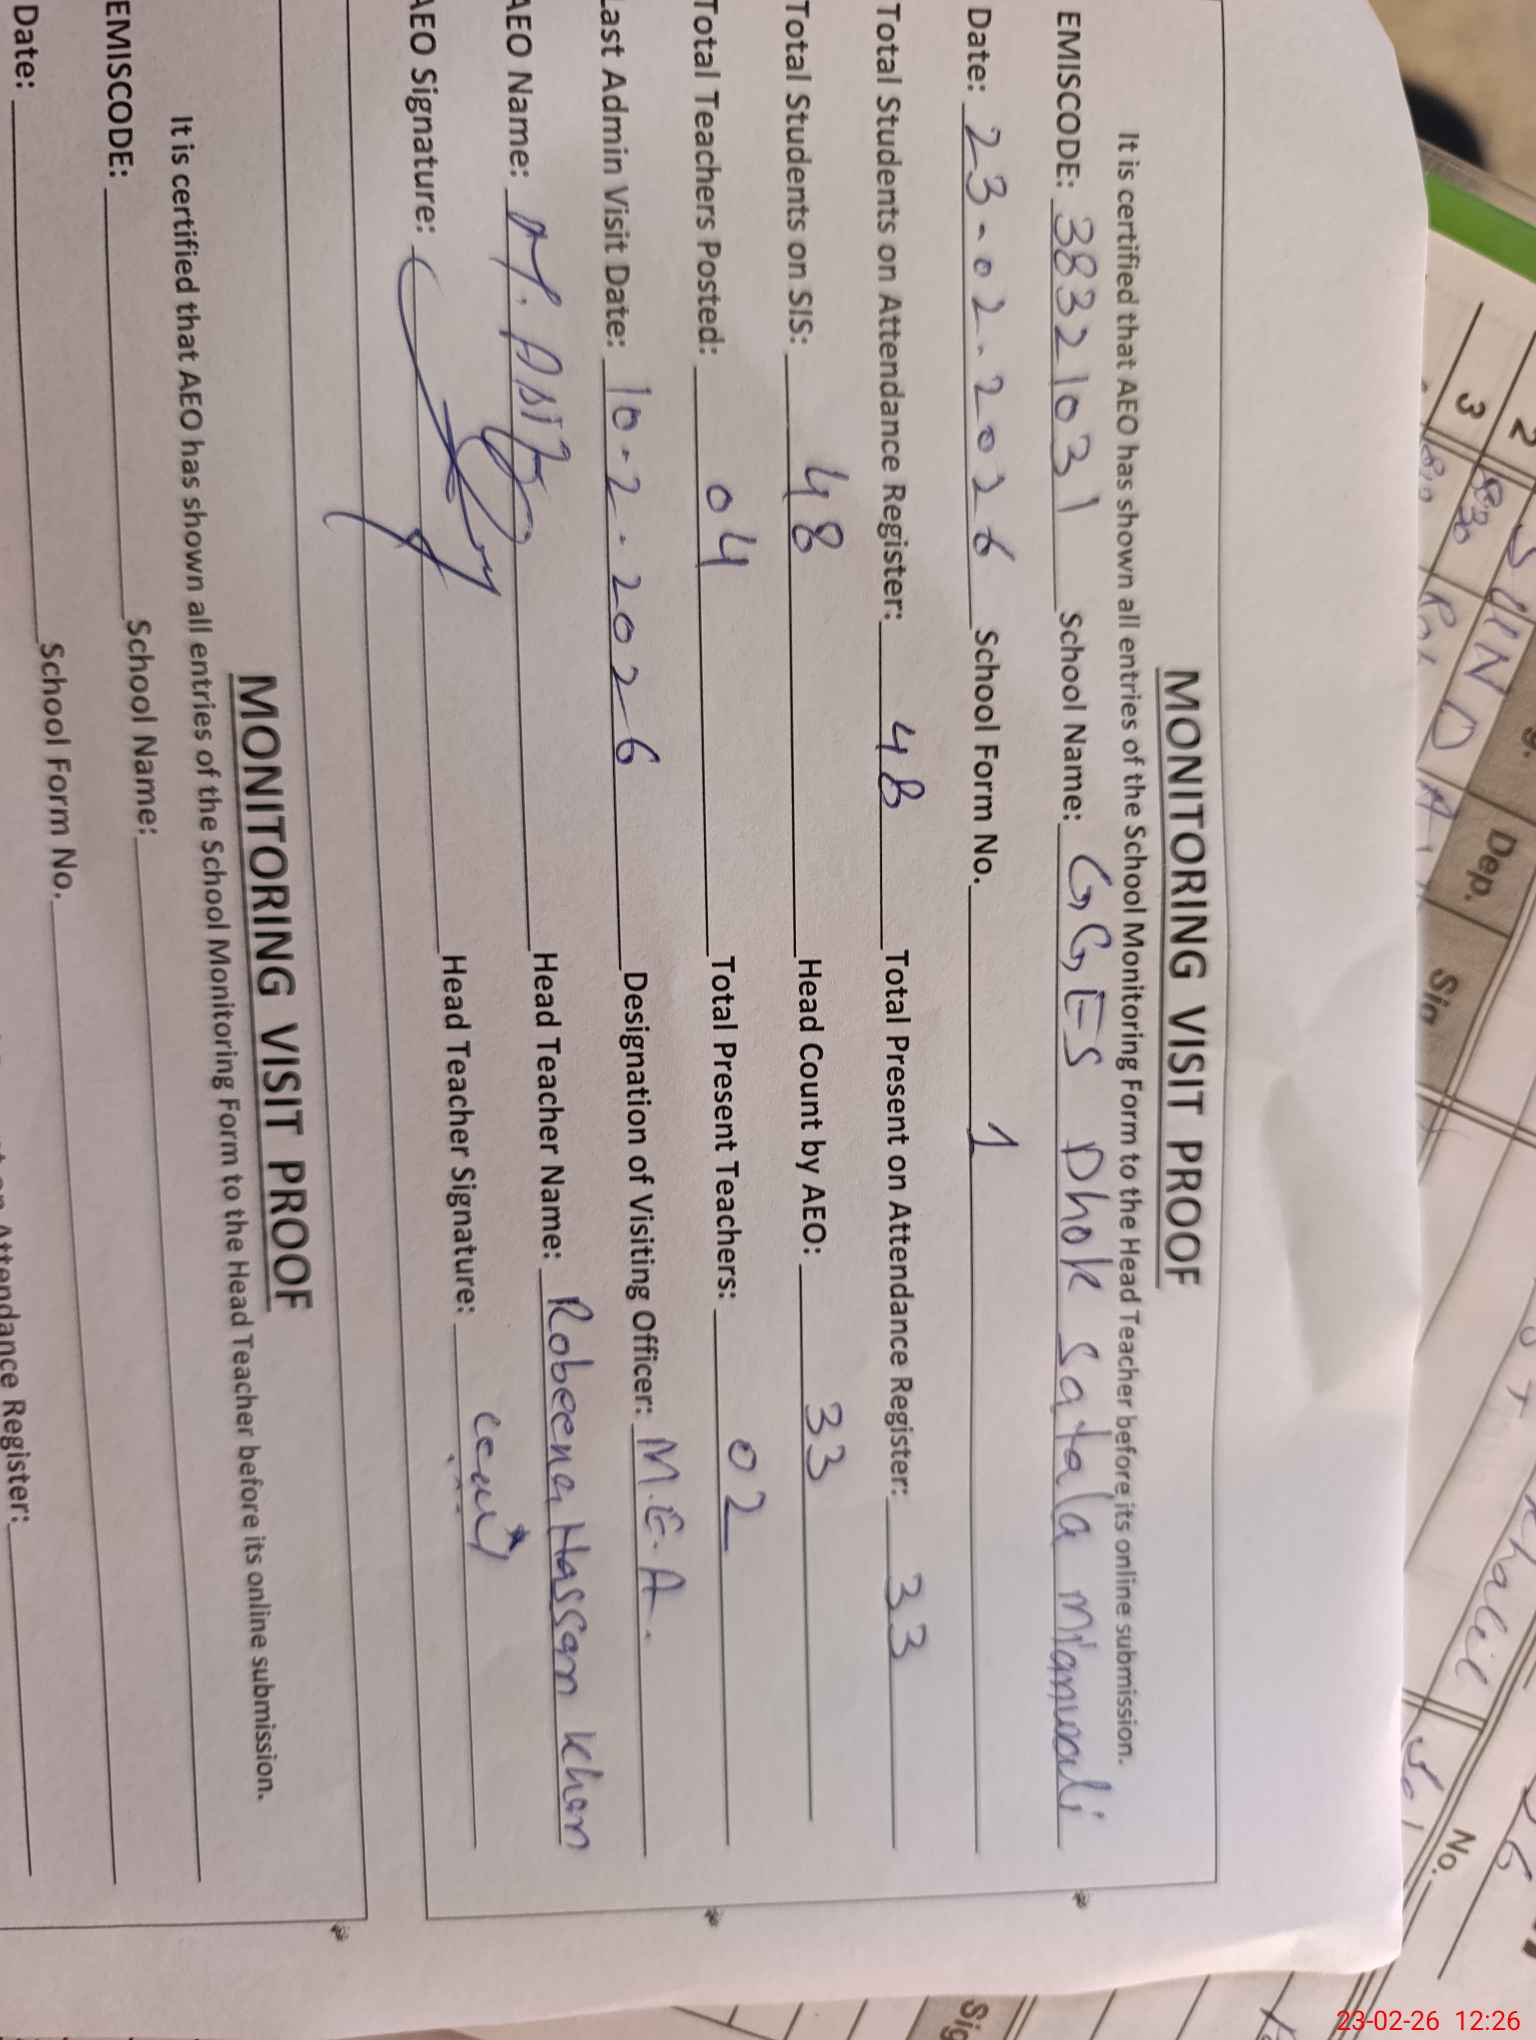 MONITORING VISIT PROOF
It is certified that AEO has shown all entries of the School Monitoring Form to the Head Teacher before its online submission.
EMISCODE: 38321031 School Name: GGES Dhok Satala Mianwali
Date: 23-02-2026 School Form No. 1
Total Students on Attendance Register: 48 Total Present on Attendance Register: 33
Total Students on SIS: 48 Head Count by AEO: 33
Total Teachers Posted: 04 Total Present Teachers: 02
Last Admin Visit Date: 10-2-2026 Designation of Visiting Officer: M.E.A.
AEO Name: M. Head Teacher Name: Robeena Hassan Khan
AEO Signature: Head Teacher Signature:
MONITORING VISIT PROOF
It is certified that AEO has shown all entries of the School Monitoring Form to the Head Teacher before its online submission.
EMISCODE: School Name:
Date: School Form No.
Attendance Register:
2
3
Dep.
Sig
No.
Sig
23-02-26 12:26